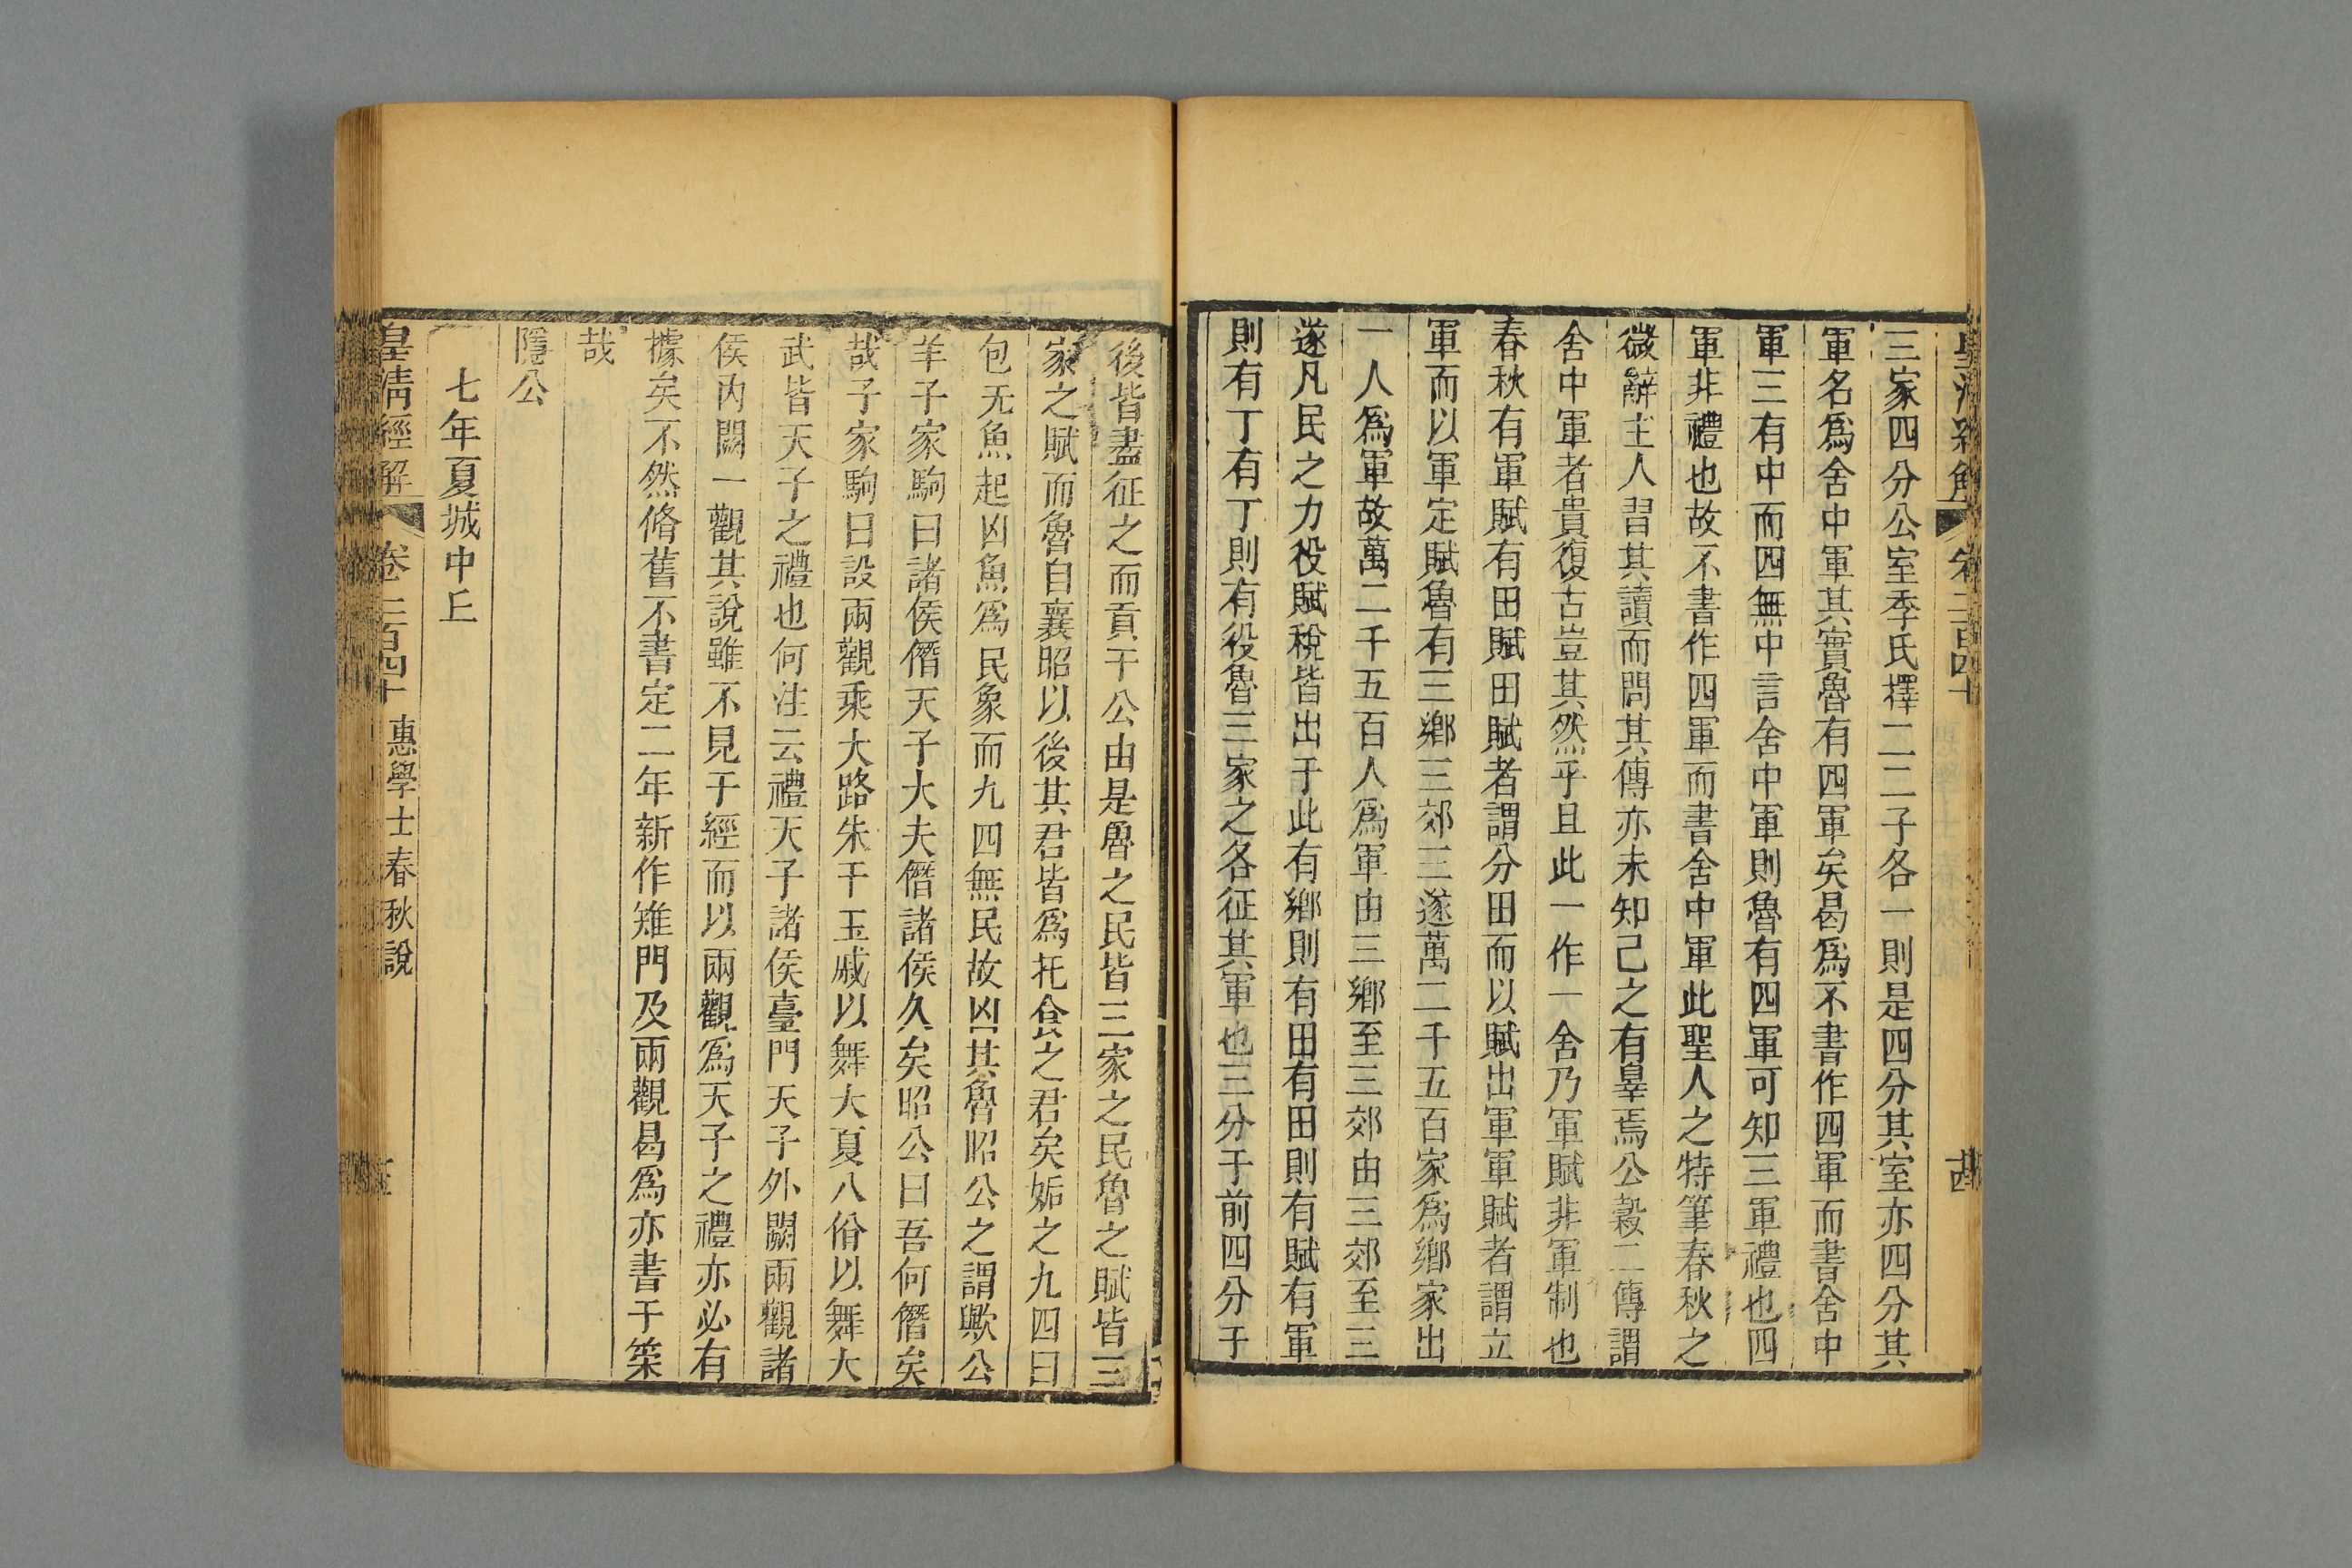 三家四分公室季氏擇二二子各一則是四分其室亦四分其
軍名爲舍中軍其實魯有四軍矣曷爲不書作四軍而書舍中
軍三有中而四無中言舍中軍則魯有四軍可知三軍禮也四
軍非禮也故不書作四軍而書舍中軍此聖人之特筆春秋之
微辭主人習其讀而問其傳亦未知己之有辠焉公穀二傳謂
舍中軍者貴復古豈其然乎且此一作一舍乃軍賦非軍制也
春秋有軍賦有田賦田賦者謂分田而以賦出軍軍賦者謂立
軍而以軍定賦魯有三鄉三郊三遂萬二千五百家爲鄉家出
一人爲軍故萬二千五百人爲軍由三鄉至三郊由三郊至三
遂凡民之力役賦稅皆出于此有鄉則有田有田則有賦有軍
則有丁有丁則有役魯三家之各征其軍也三分于前四分于
後皆盡征之而貢于公由是魯之民皆三家之民魯之賦皆三
家之賦而魯自襄昭以後其君皆爲托食之君矣姤之九四曰
包无魚起凶魚爲民象而九四無民故凶其魯昭公之謂歟公
羊子家駒曰諸侯僭天子大夫僭諸侯久矣昭公曰吾何僭矣
哉子家駒曰設兩觀乘大路朱干玉戚以舞大夏八佾以舞大
武皆天子之禮也何注云禮天子諸侯臺門天子外闕兩觀諸
侯內闕一觀其說雖不見于經而以兩觀爲天子之禮亦必有
據矣不然脩舊不書定二年新作雉門及兩觀曷爲亦書于筞
哉
隱公
七年夏城中丘
皇清經解 卷二百四十 惠學士春秋說